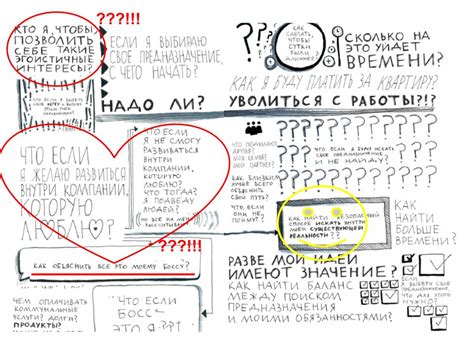 ???!!!
КТО Я, ЧТОБЫ
ПОЗВОЛИТЬ
СЕБЕ ТАКИЕ
ЭГОИСТИЧНЫЕ
ИНТЕРЕСЫ?
ЕСЛИ Я ВЫБИРАЮ
СВОЕ ПРЕДНАЗНАЧЕНИЕ,
С ЧЕГО НАЧАТЬ?
КАК
СДЕЛАТЬ,
ЧТОБЫ
СУТКИ
БЫЛИ
ДЛИННЕЕ?
СКОЛЬКО НА
ЭТО УЙДЕТ
ВРЕМЕНИ?
КАК Я БУДУ ПЛАТИТЬ ЗА КВАРТИРУ?
НАДО ЛИ?
УВОЛИТЬСЯ С РАБОТЫ?!?
ЧТО ЕСЛИ
Я ЖЕЛАЮ РАЗВИТЬСЯ
ВНУТРИ КОМПАНИИ,
КОТОРУЮ
ЛЮБЛЮ?
ЧТО ЕСЛИ
Я НЕ СМОГУ
РАЗВИВАТЬСЯ
ВНУТРИ
КОМПАНИИ,
КОТОРУЮ
ЛЮБЛЮ?
ЧТО ТОГДА?
Я ПОДВЕДУ
ЛЮДЕЙ?
НО ВСЕ НА МЕНЯ
РАССЧИТЫВАЮТ
???!!!
ЧТО ПОДУМАЮТ
ДРУЗЬЯ?
МОЯ СЕМЬЯ?
МОЙ ПАРТНЕР?
КАК БЛИЗКИМ
ЛУЧШЕ ВСЕГО
ОБЪЯСНИТЬ
СВОЙ ПУТЬ?
ЧТО ЕСЛИ
ОНИ НЕ
ПОЙМУТ?
ЧТО ЕСЛИ Я БУДУ ИСКАТЬ
СВОЕ ПРЕДНАЗНАЧЕНИЕ
И НЕ НАЙДУ?
КАК НАЙТИ БЕЗОПАСНЫЙ
СПОСОБ ИСКАТЬ ВНУТРИ
МОЕЙ СУЩЕСТВУЮЩЕЙ
РЕАЛЬНОСТИ??
КАК
НАЙТИ
БОЛЬШЕ
ВРЕМЕНИ?
???!!!
КАК ОБЪЯСНИТЬ ВСЕ ЭТО МОЕМУ БОССУ?
РАЗВЕ МОИ ИДЕИ
ИМЕЮТ ЗНАЧЕНИЕ?
КАК НАЙТИ БАЛАНС
МЕЖДУ ПОИСКОМ
ПРЕДНАЗНАЧЕНИЯ
И МОИМИ ОБЯЗАННОСТЯМИ?
ЕСЛИ
Я ВЫБЕРУ СВОЕ
ПРЕДНАЗНАЧЕНИЕ,
ЧТО ДЛЯ ЭТОГО
НУЖНО?
ЧЕМ ОПЛАЧИВАТЬ
КОММУНАЛЬНЫЕ
УСЛУГИ? ДОЛГИ?
ПРОДУКТЫ?
"ЧТО ЕСЛИ
БОСС-